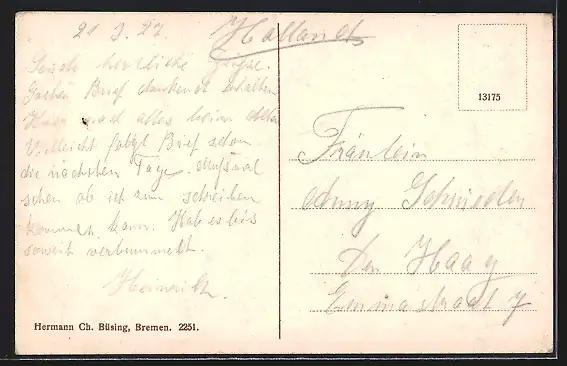 21.3.27. Hollands
Sende herzliche Grüße.
Gestern Brief dankend erhalten
Hier noch alles beim alten
Vielleicht folgt Brief schon
die nächsten Tage. Muß mal
sehen ob ich zum schreiben
kommen kann. Hab es bis
soweit verbummelt.
Heinrich.
Hermann Ch. Büsing, Bremen. 2251.
13175
Fräulein
Anny Schmieden
Den Haag
Emmastraat 7